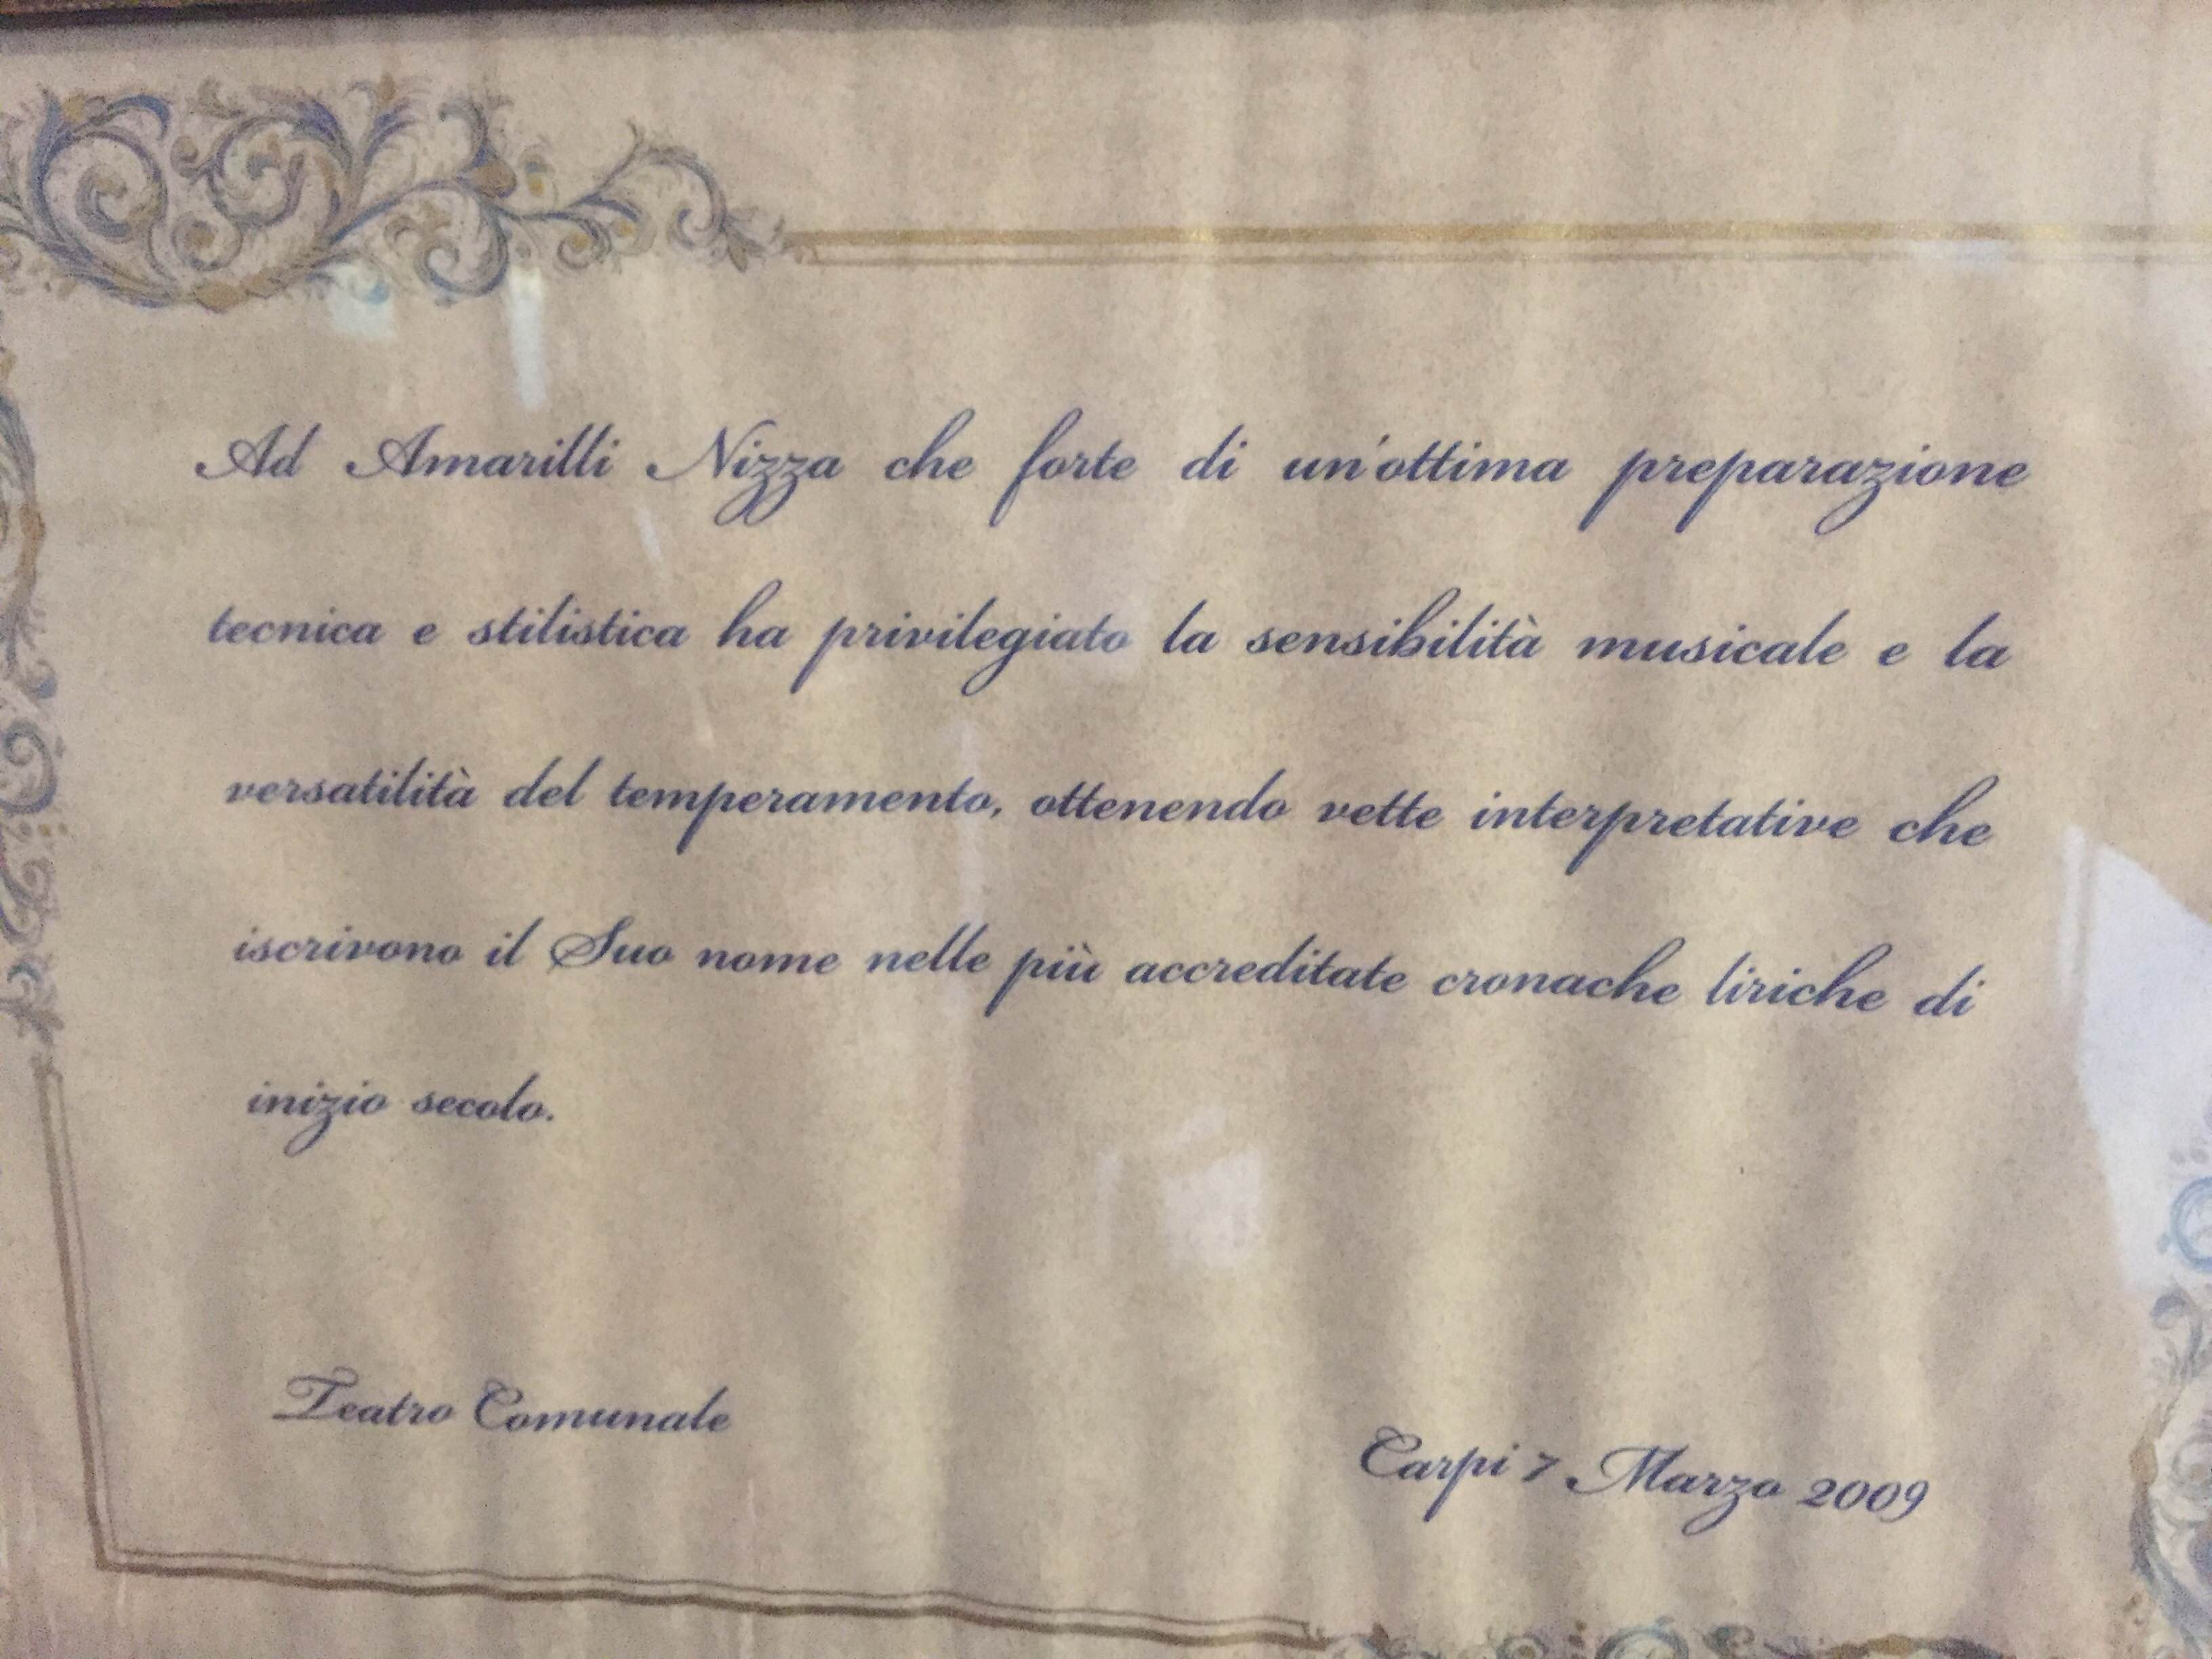 Ad Amarilli Nizza che forte di un'ottima preparazione
tecnica e stilistica ha privilegiato la sensibilità musicale e la
versatilità del temperamento, ottenendo vette interpretative che
iscrivono il Suo nome nelle più accreditate cronache liriche di
inizio secolo.
Teatro Comunale
Carpi 7 Marzo 2009